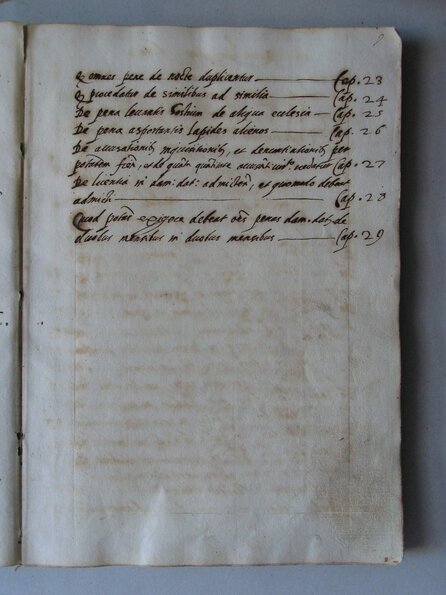 Q omnes pene de nocte duplicantur Cap. 23
Q procedatur de similibus ad similia Cap. 24
De pena levantis hostium de aliqua ecclesia Cap. 25
De pena asportantis lapides alienos Cap. 26
De accusationib. inquisitionib., et denuntiationib. per
potatem fien., et de quanta quantitate Cap. 27
De licentia in dam: dat: admicten., et quomodo debeat
admicti Cap. 28
Quod potas exigere debeat oes penas dam. dat. de
duobus mensibus in duobus mensibus Cap. 29